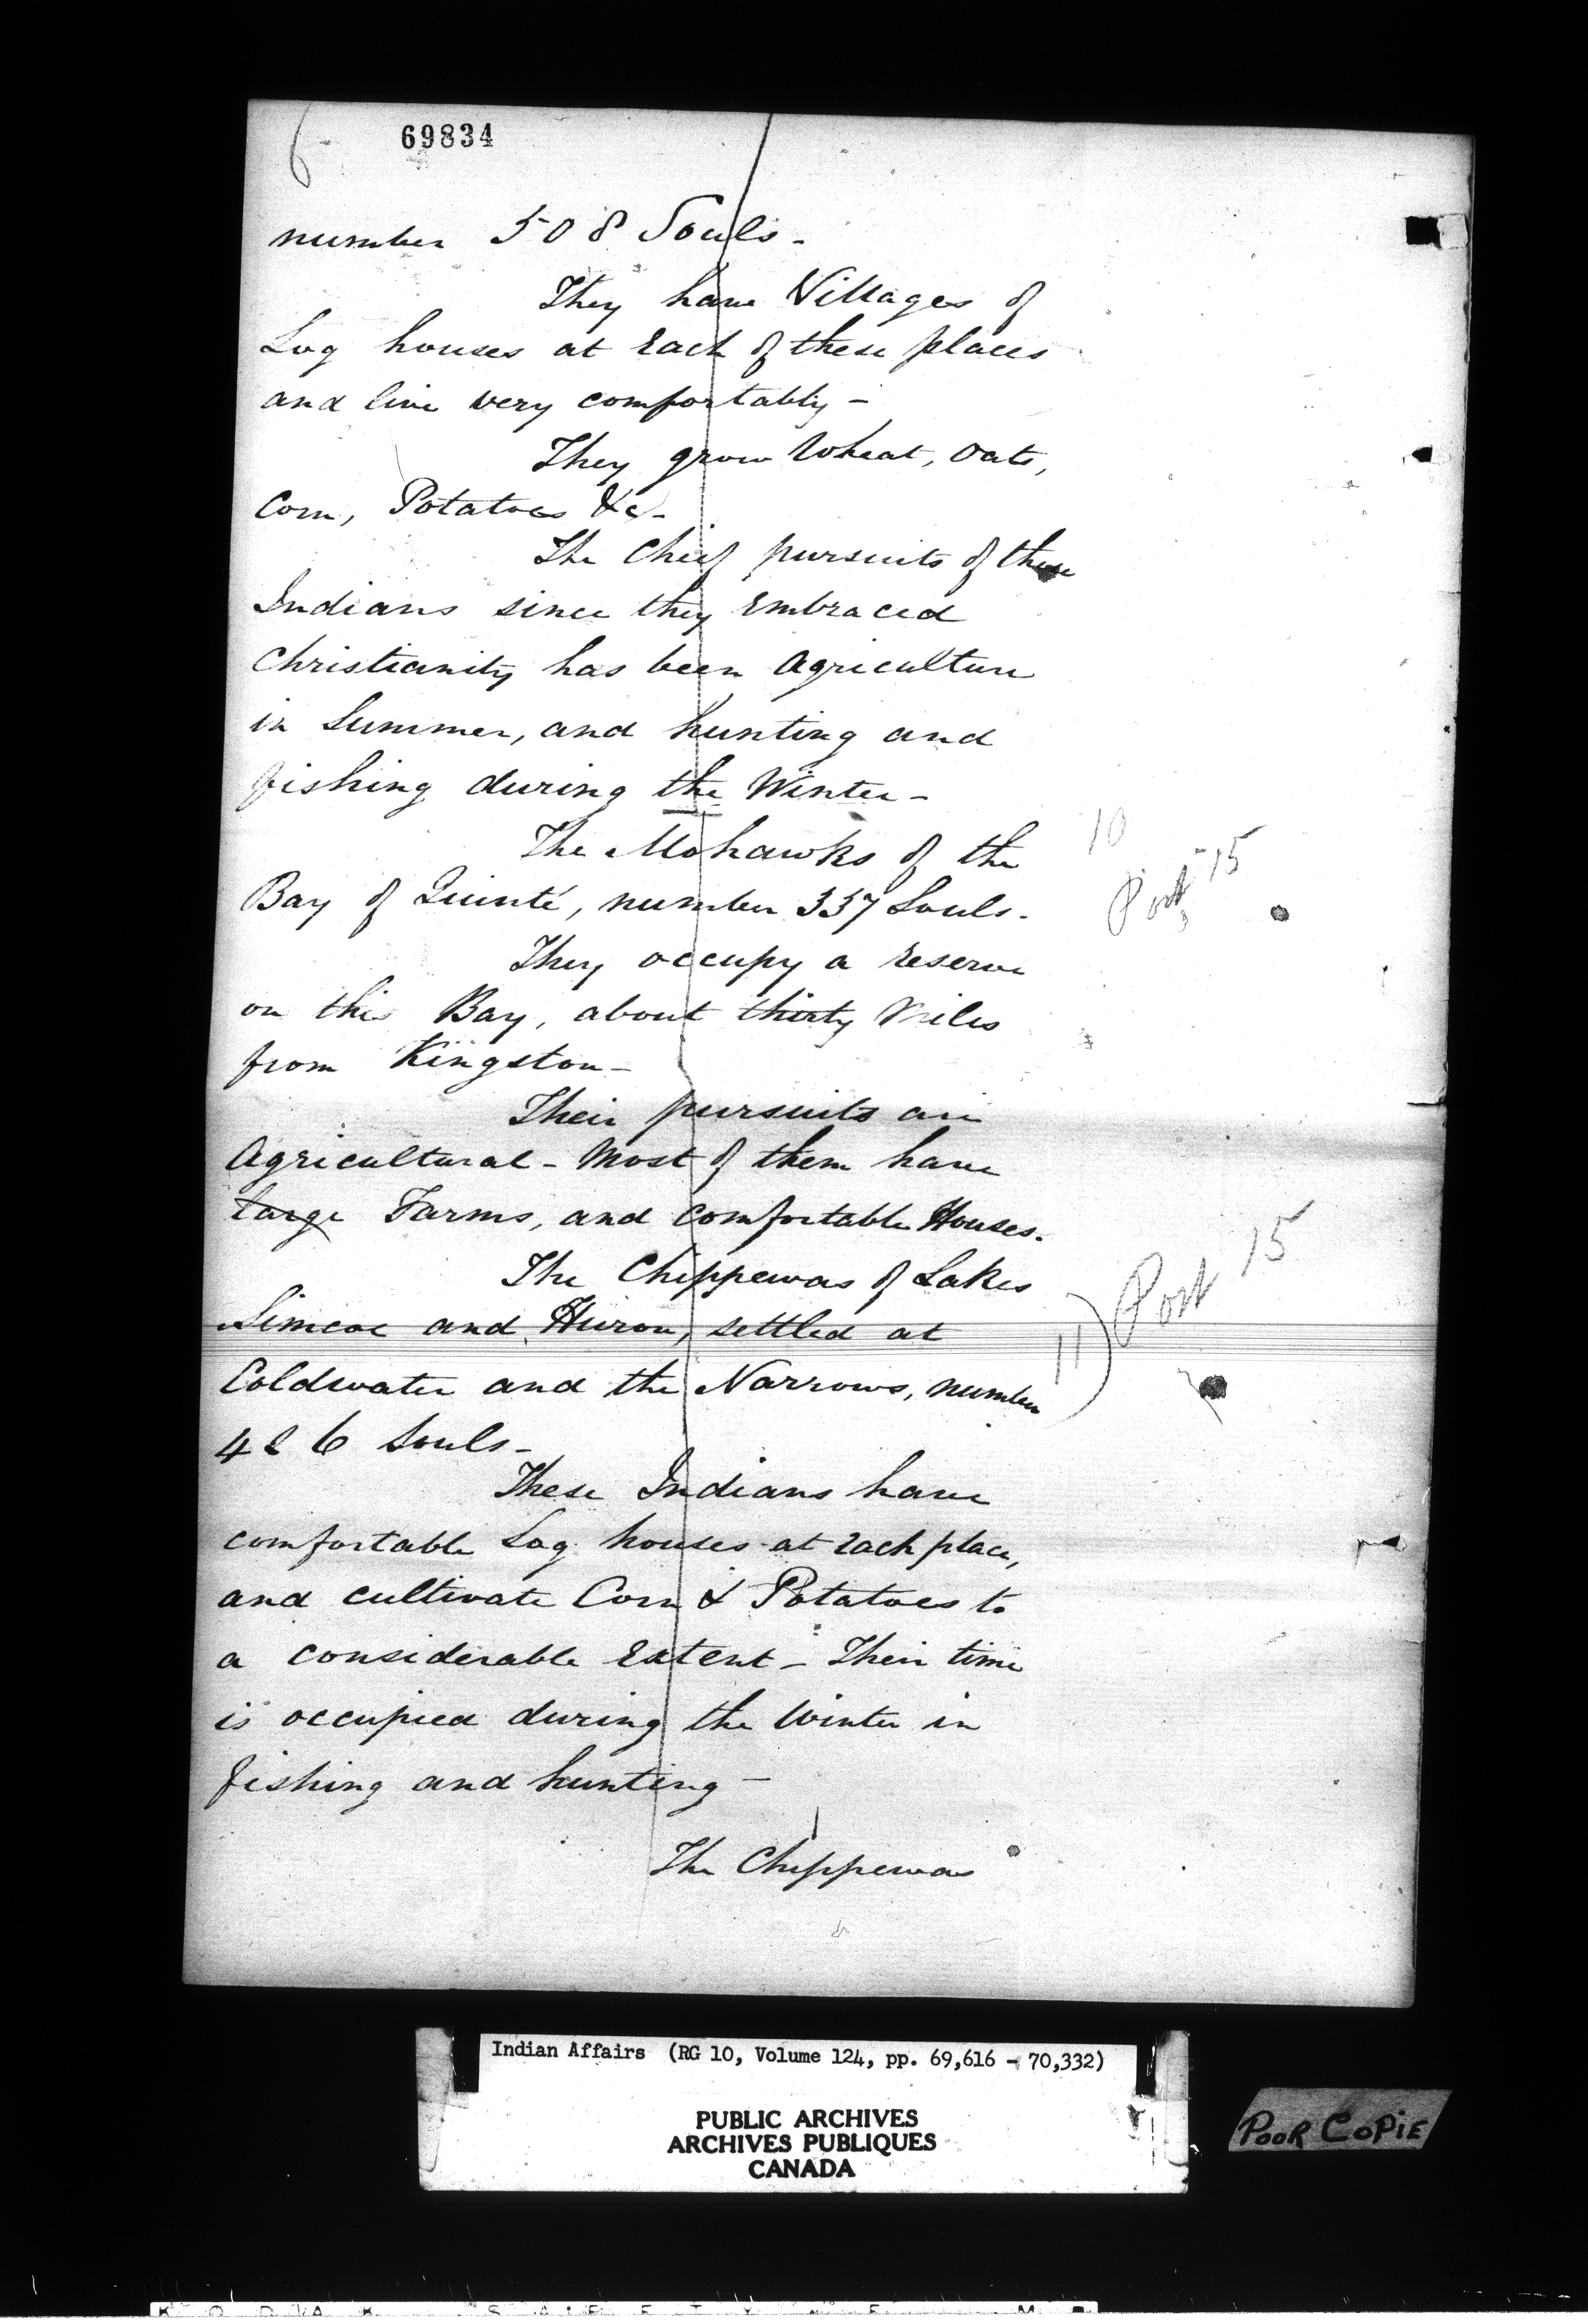 69834
number 508 Souls -
They have Villages of
Log houses at Each of these places
and live very comfortably -
They grow Wheat, Oats,
Corn, Potatoes &c -
The Chief pursuits of these
Indians since they Embraced
Christianity has been Agriculture
in Summer, and hunting and
fishing during the Winter -
The Mohawks of the
10
Port 15
Bay of Quinté, number 337 Souls -
They occupy a reserve
on this Bay, about thirty Miles
from Kingston -
Their pursuits are
Agricultural - Most of them have
large Farms, and Comfortable Houses.
The Chippewas of Lakes
Port 15
Simcoe and Huron, settled at
11
Coldwater and the Narrows, number
426 Souls -
These Indians have
comfortable Log houses at Each place,
and cultivate Corn & Potatoes to
a considerable Extent - Their time
is occupied during the Winter in
fishing and hunting -
The Chippewas
Indian Affairs (RG 10, Volume 124, pp. 69,616 - 70,332)
PUBLIC ARCHIVES
ARCHIVES PUBLIQUES
CANADA
POOR COPiE